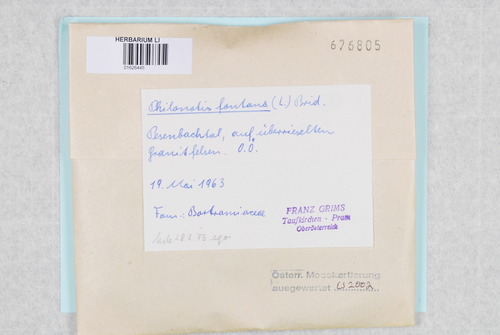 HERBARIUM LI
01626445
676805
Philonotis fontana (L.) Brid.
Pesenbachtal, auf überrieselten
Granitfelsen. O.Ö.
19. Mai 1963
Fam.: Bartramiaceae
FRANZ GRIMS
Taufkirchen - Pram
Oberösterreich
Österr. Mooskartierung
ausgewertet LI 2002